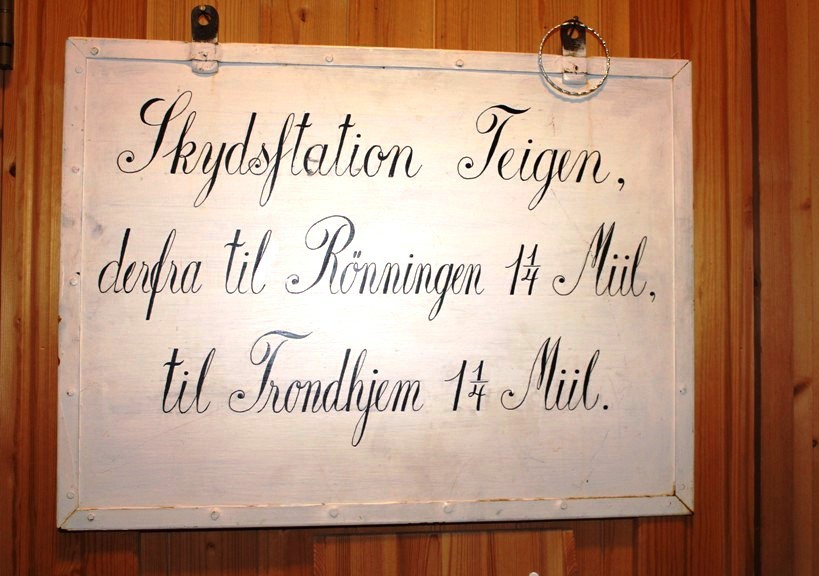 Skydsſtation Teigen,
derfra til Rönningen 1 1/4 Miil,
til Trondhjem 1 1/4 Miil.